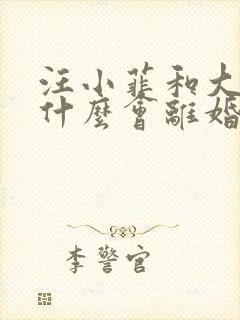 汪小菲和大
什麼會離婚
李警官